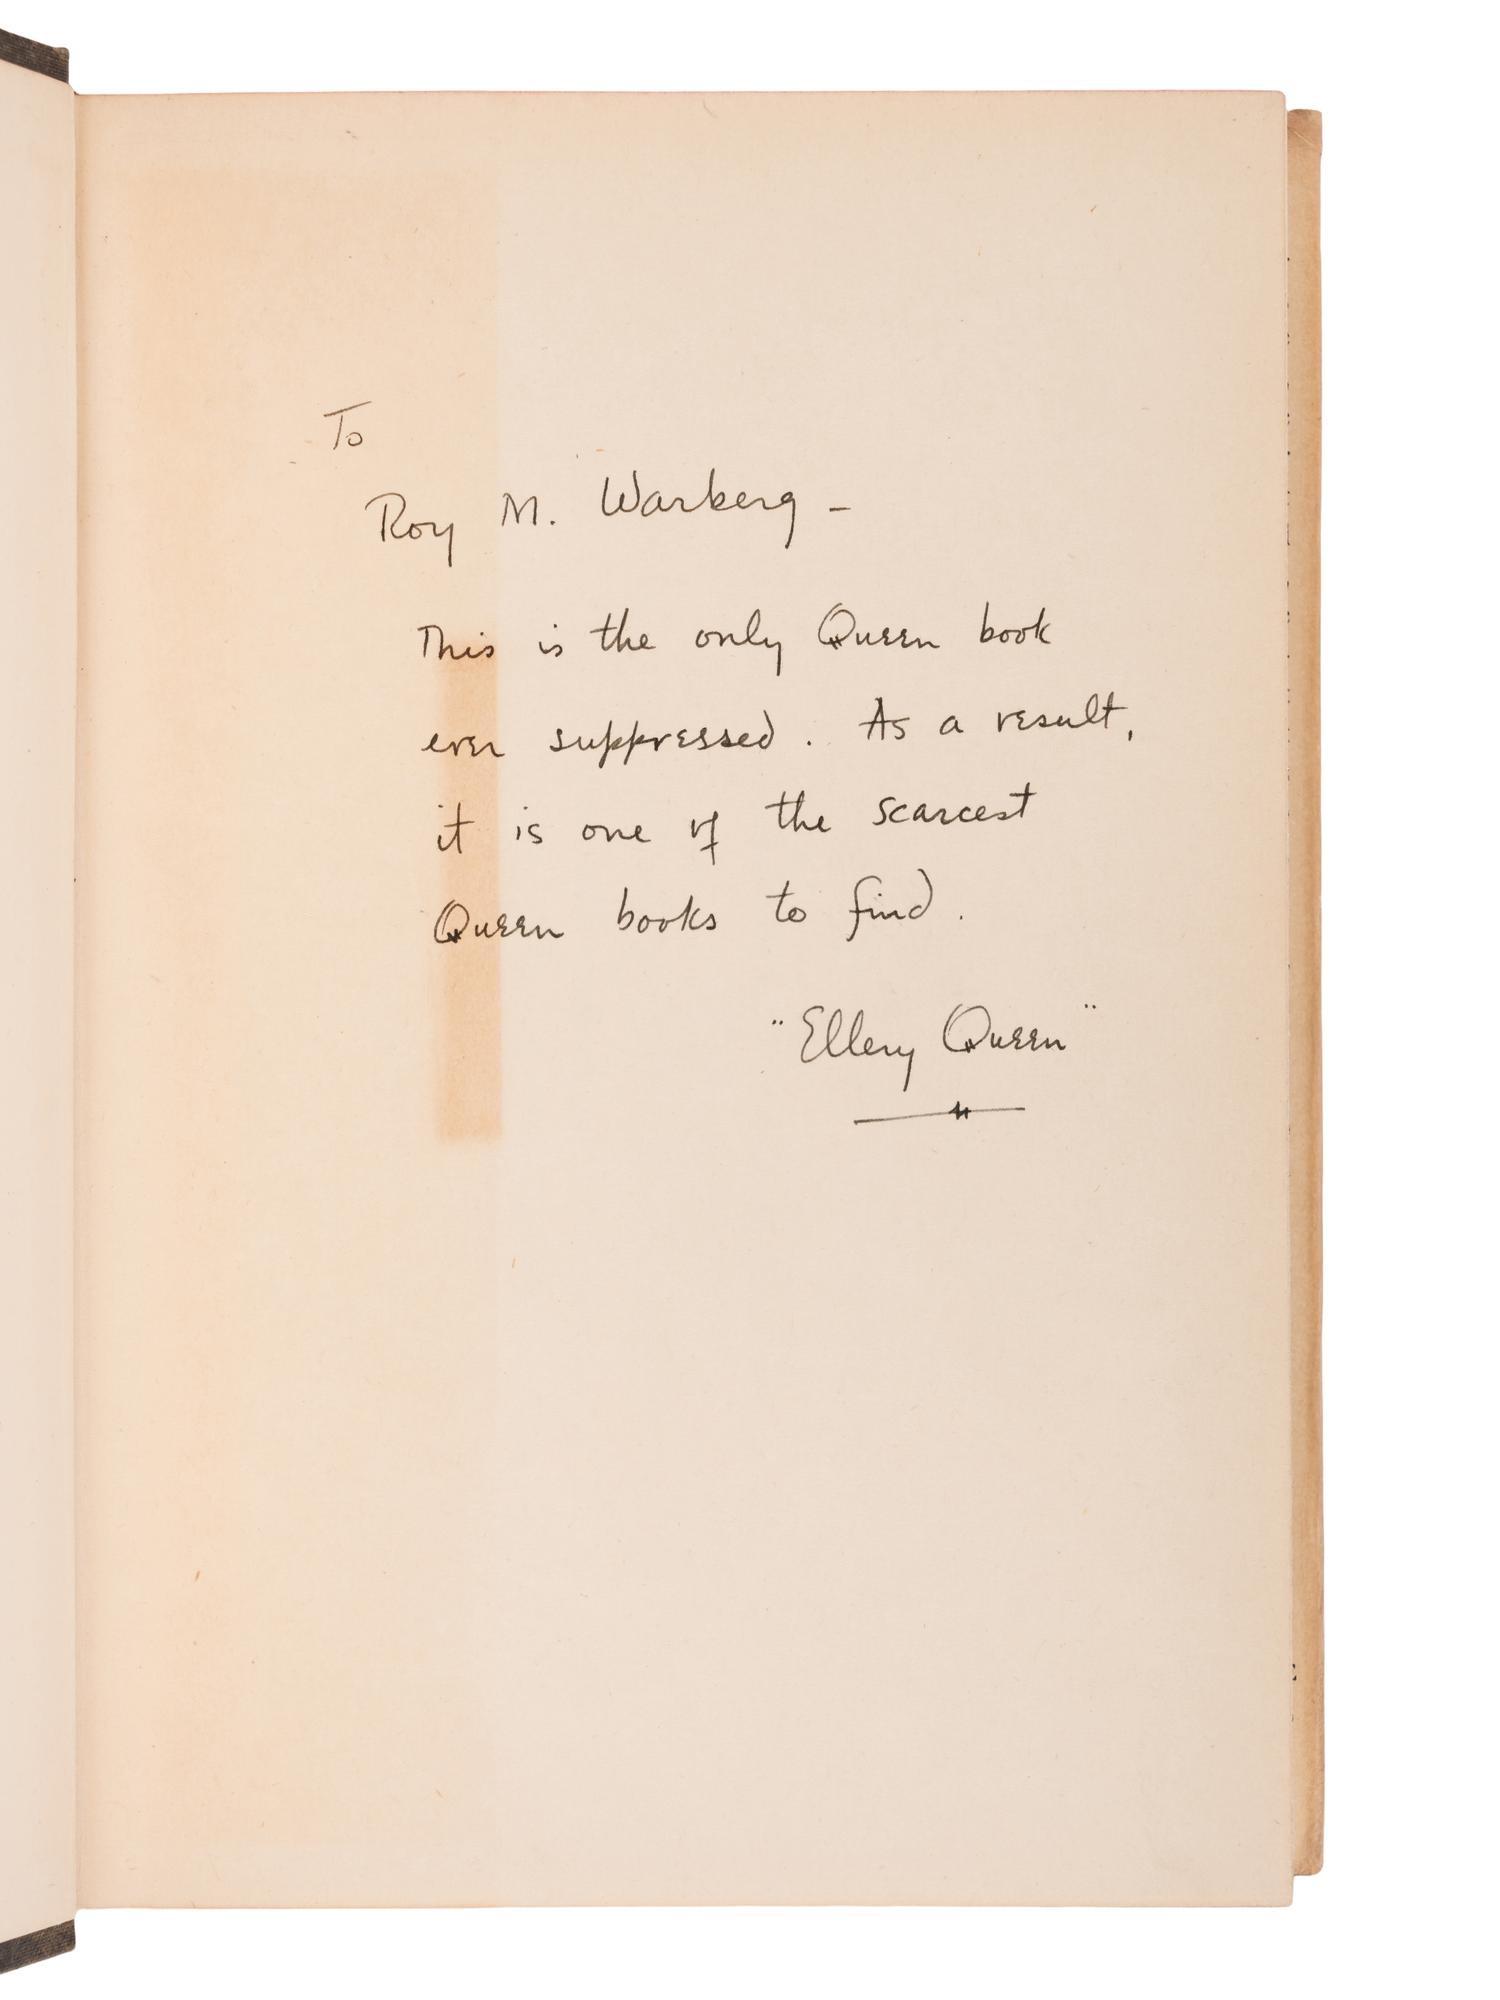 To
Roy M. Warberg –
This is the only Queen book
ever suppressed. As a result,
it is one of the scarcest
Queen books to find.
"Ellery Queen"